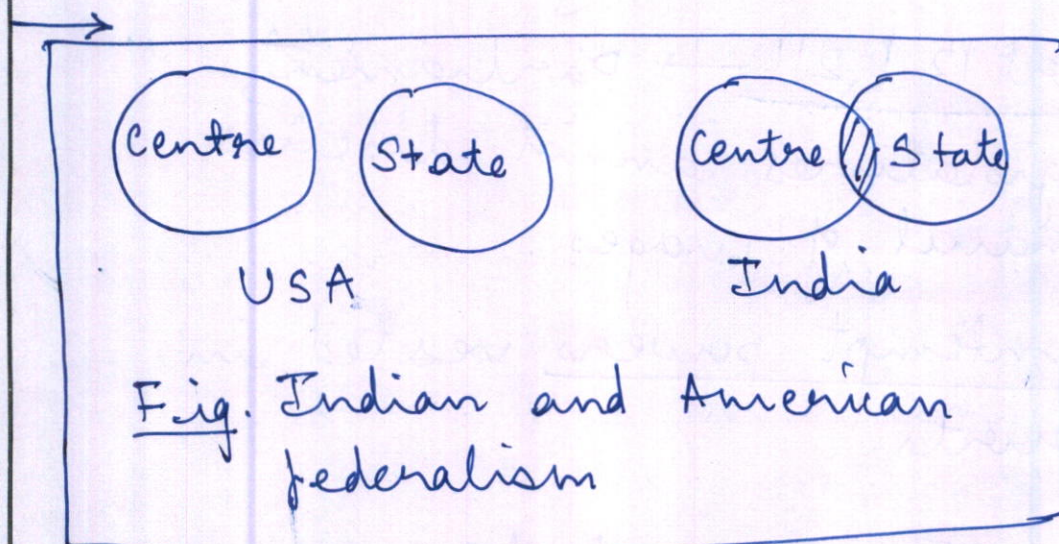 Centre State Centre State
USA India
Fig. Indian and American
federalism